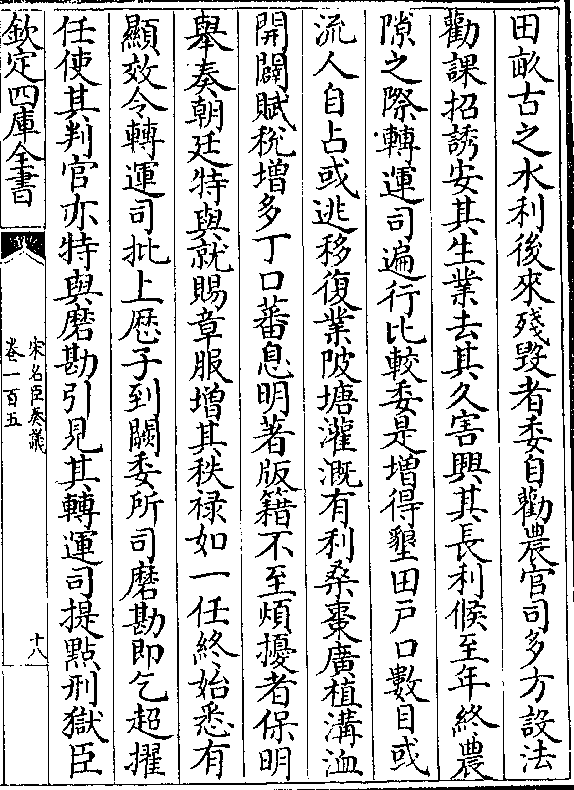 田畝古之水利後來殘毀者委自勸農官司多方設法
勸課招誘安其生業去其久害興其長利候至年終農
隙之際轉運司遍行比較委是增得墾田戸口數目或
流人自占或逃移復業陂塘灌溉有利桑棗廣植溝洫
開闢賦稅增多丁口蕃息明著版籍不至煩擾者保明
舉奏朝廷特與就賜章服增其秩禄如一任終始悉有
顯效令轉運司批上歴子到闕委所司磨勘即乞超擢
任使其判官亦特與磨勘引見其轉運司提點刑獄臣
欽定四庫全書
宋名臣奏議
卷一百五
十八